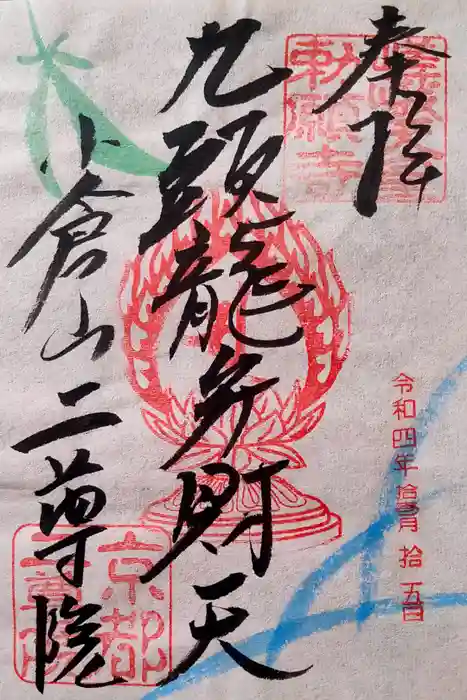 奉拝
嵯峨山
勅願寺
令和四年拾壱月拾五日
九頭龍弁財天
小倉山二尊院
京都
二尊院